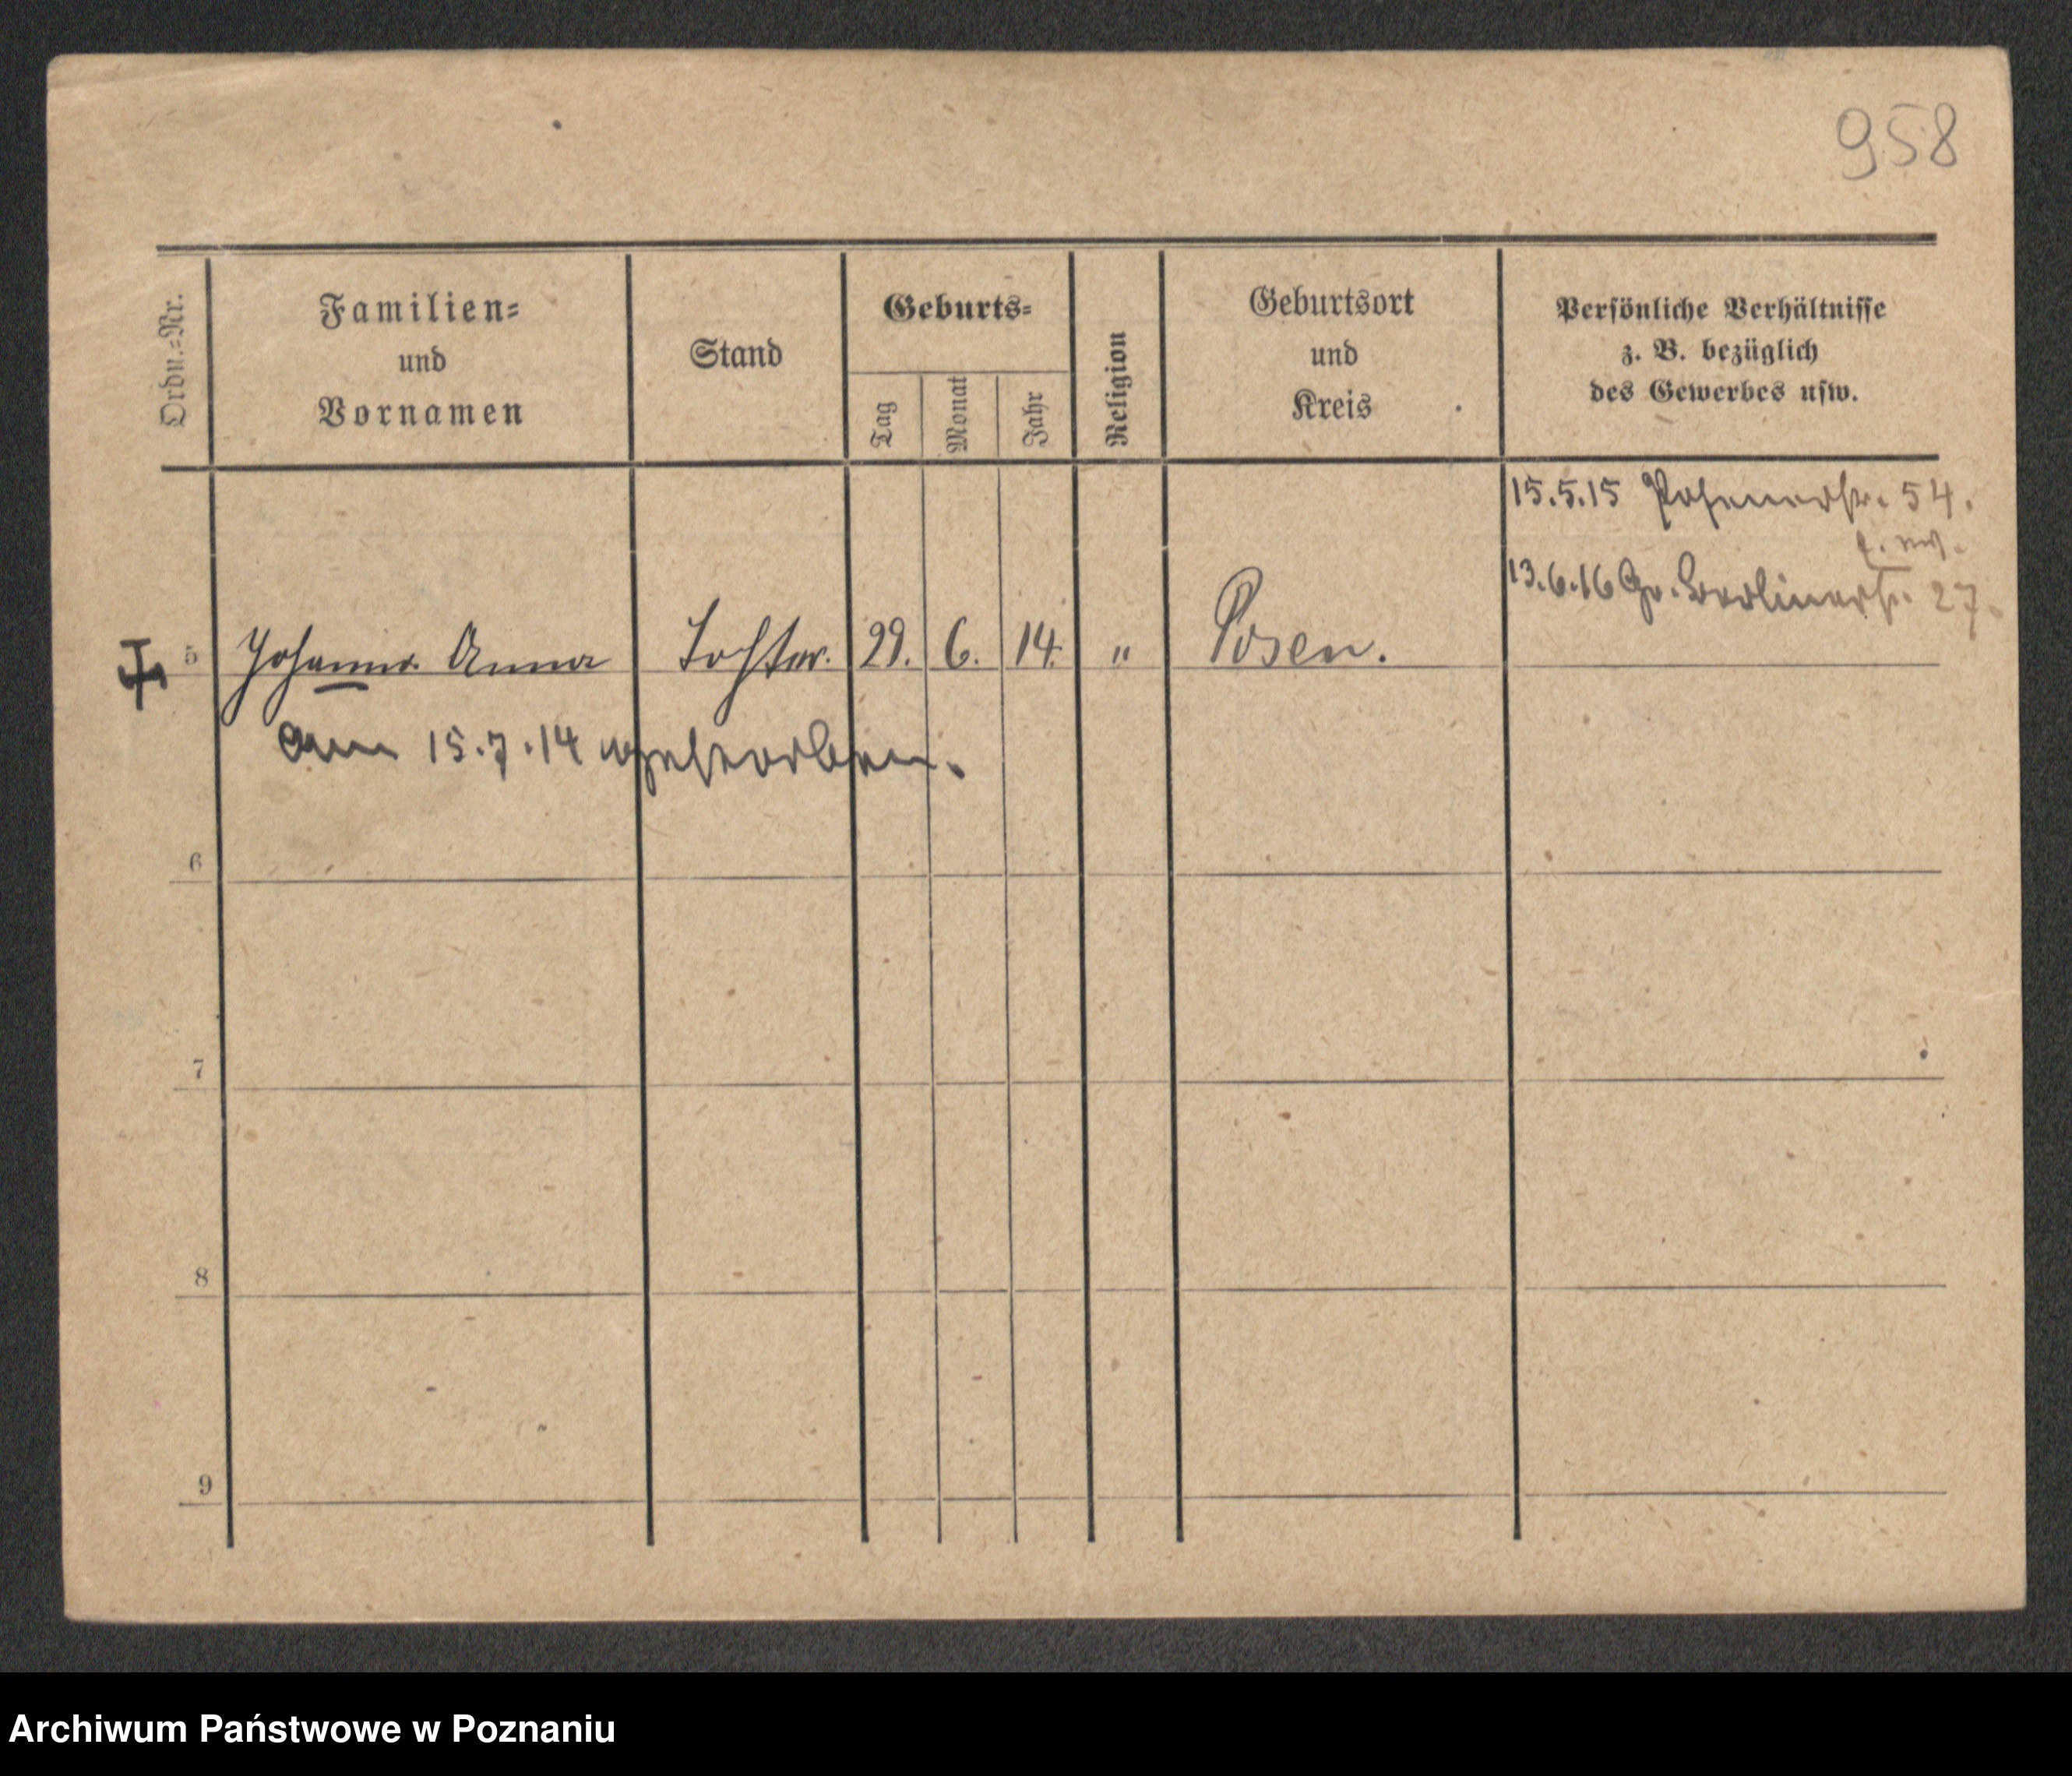 958
Ordn.-Nr.
Familien-
und
Vornamen
Stand
Geburts-
Tag
Monat
Jahr
Religion
Geburtsort
und
Kreis
Persönliche Verhältnisse
z. B. bezüglich
des Gewerbes usw.
15.5.15 Posenerstr. 54.
13.6.16 Gr. Berlinerstr. 27.
5 Johanna Anna Tochter. 29. 6. 14. " Posen.
am 15.7.14 gestorben.
6
7
8
9
Archiwum Państwowe w Poznaniu